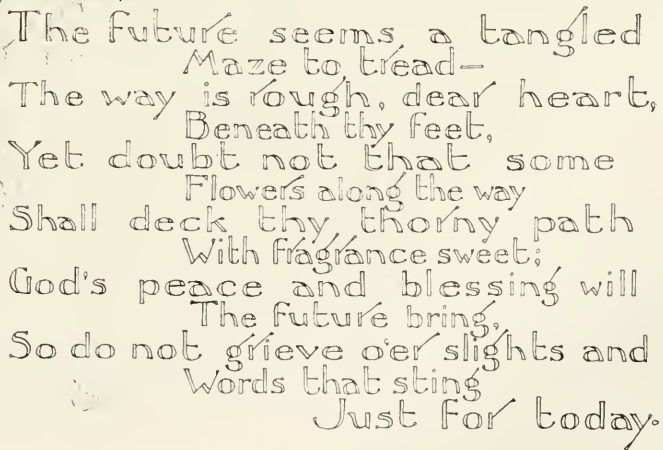 The future seems a tangled
Maze to tread—
The way is rough, dear heart,
Beneath thy feet,
Yet doubt not that some
Flowers along the way
Shall deck thy thorny path
With fragrance sweet;
God's peace and blessing will
The future bring,
So do not grieve o'er slights and
Words that sting
Just for today.